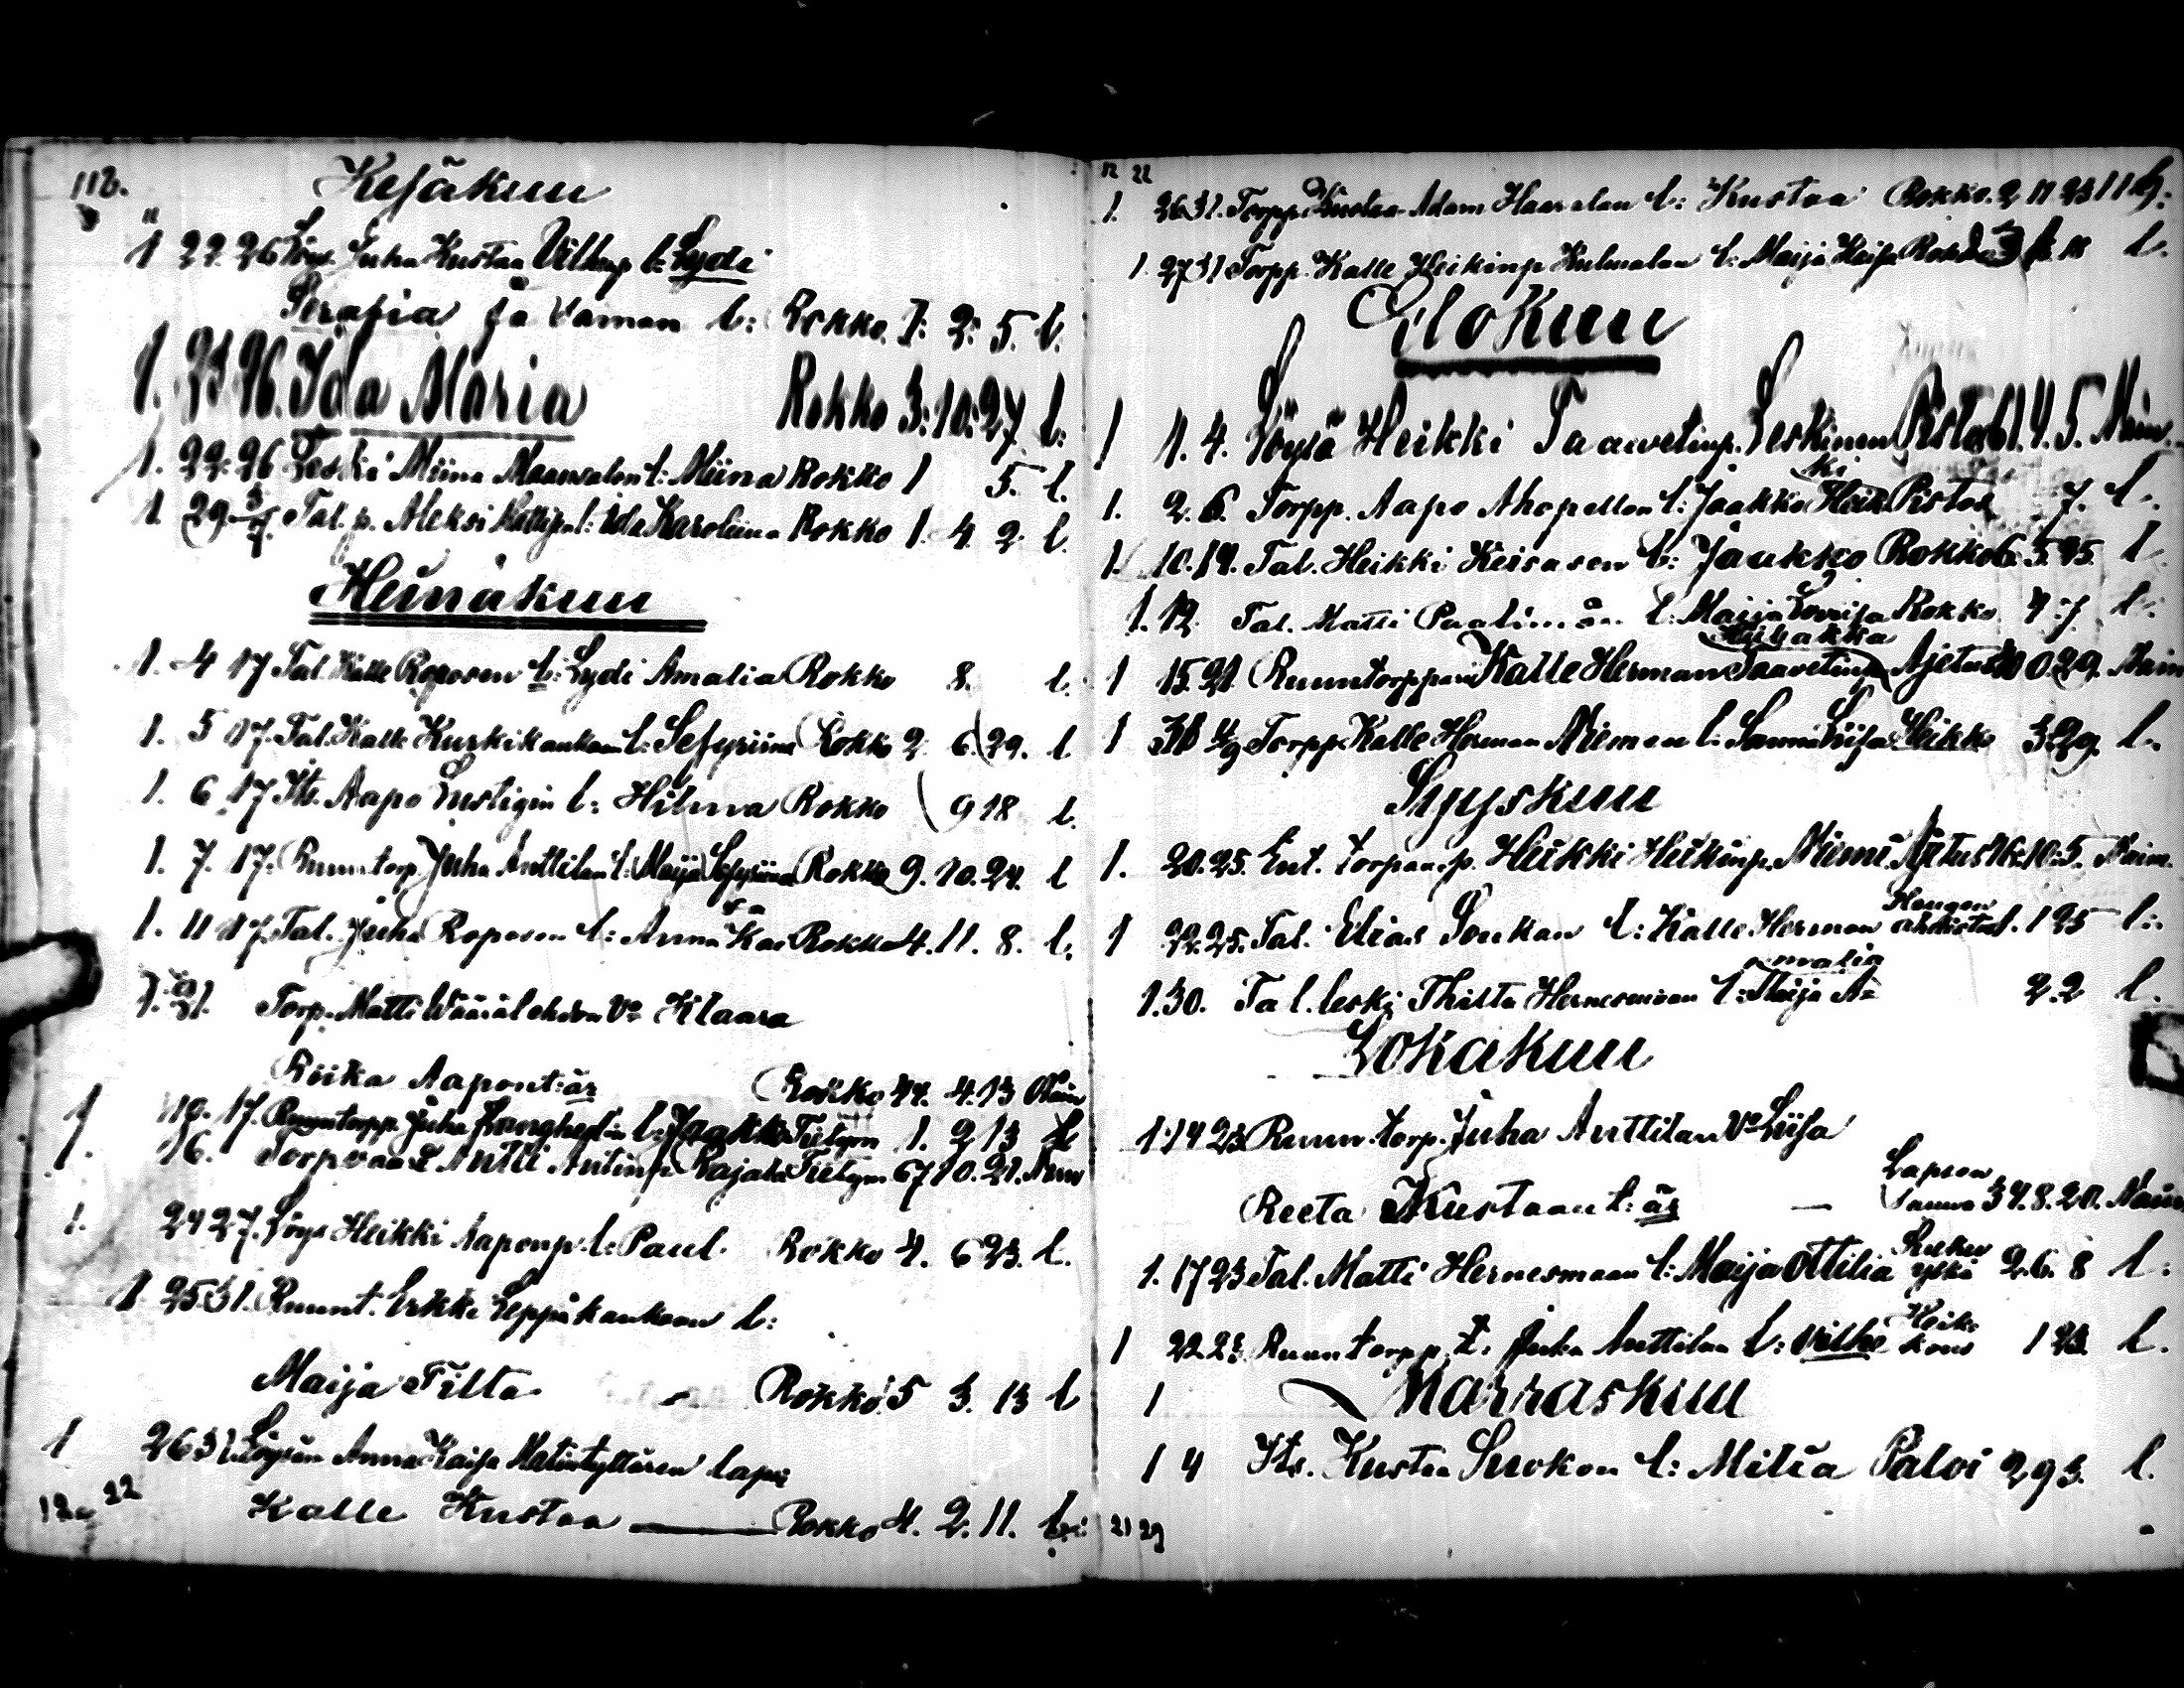 112.
Kesäkuu
1 22. 26 Löys. Juha Kustaa Villenp l: Lydi
Serafia ja Vaman l: Rokko. 7: 2: 5. l.
1. 23 26. Ida Maria Rokko 3: 10: 27. l:
1. 22. 26 Leski Miina Maanselen l: Miina Rokko 1 5. l.
1. 29 Tal. p. Aleksi l: Ida Karoliina Rokko 1. 4. 2. l.
Heinäkuu
1. 4 17 Tal. Kalle Roposen l: Lydi Amalia Rokko 8. l.
1. 5 17. Tal. Kalle Kurkikankaan l: Sefyriina Rokko 2. 6. 29. l
1. 6 17 Its. Aapo Lustigin l: Hilma Rokko 9 18 l.
1. 7. 17. Ruuntorp. Juha Anttilan l: Maija Sefyriina Rokko 9. 10. 24. l
1. 11 17. Tal. Juha Roposen l: Anna Kai Rokko 4. 11. 8. l.
sa
1. 21. Torp. Matti Wäärälehdon Vo Klaara
Riika Aapont:är Rokko 44. 4. 13 Nain
1 10. 17. Ruuntorpp. Juha Langhedin l: Jaakko Tietym 1. 2 13 l
1. 16. Torpvaar Antti Antinp Rajala Tietym 67 10. 21. Nain
1. 24 27. Löys Heikki Aaponp. l: Paul. Rokko 4. 6 23. l.
1 25 31. Ruunt. Erkki Leppäkankaan l:
Maija Tilta - Rokko 5 3. 13 l
1 26 31. Löysän Anna Kaisa Matintyttären lapsi
12 22 Kalle Kustaa Rokko 4. 2. 11. l:
12 22
1. 26 31. Torpp. Kustaa Adam Haaralan l: Kustaa Rokko. 2 11 23 l
1. 27 31 Torpp. Kalle Heikinp Kulmalan l: Maija Kaisa l.
Elokuu
1 1. 4. Löysä Heikki Taavetinp. Leskinen Pistos 61. 4. 5. Nain.
1. 2. 6. Torpp. Aapo Ahopellon l: Jaakko Heik Pistos 7. l.
ki
1. 10. 14. Tal. Heikki Keisasen l: Jaakko Rokko 6. 5. 15. l
1. 12 Tal. Matti l: Maija Lovisa Rokko 4 7 l.
1 15. 21. Ruuntorppari Kalle Herman Taavetinp Ajetus 10 0. 29. Nain
1 31 4/9 Torpp. Kalle Herman Niemen l: Sanna Liisa Heikk 3 29. l.
Syyskuu
1. 20. 25. Ent. torpan p. Heikki Heikinp. Niemi Ajetus 76. 10. 5. Naim.
1 22. 25. Tal. Elias Soukan l: Kalle Herman Hengen ahdistus 1. 1 25 l:.
1. 30. Tal. leski Thilta Hernesmaan l: Maija A= 2. 2 l.
malia
Lokakuu
1. 14 23 Ruun. torp. Juha Anttilan Vo Liisa
Reeta Kustaan t: är — Lapsen Sauna 34. 8. 20. Nain
1. 17 23 Tal. Matti Hernesmaan l: Maija Ottilia Kuku yskä 2. 6. 8 l.
1 22. 23 Ruuntorpp. t. Juha Anttilan l: Vilhe Heik kous 1 23. l.
1 Marraskuu
1 4 Its. Kustaa Suokon l: Milia Paloi 2 9 3. l.
21 29